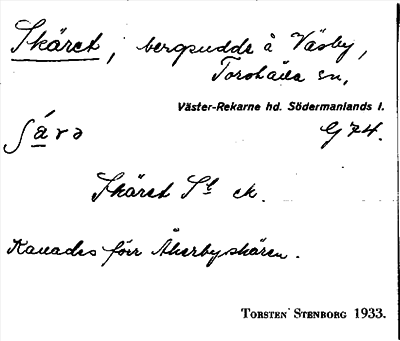 Skäret, bergsudde å Väsby,
Torshälla sn,
Väster-Rekarne hd. Södermanlands l.
ʃárə G 74.
Skäret Sb ek.
Kallades förr Åkerbyskären.
TORSTEN STENBORG 1933.